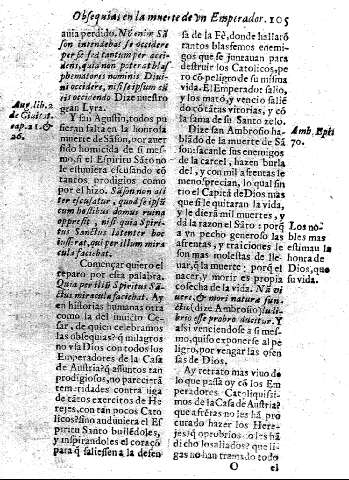 Obsequias en la muerte de vn Emperador. 105
auia perdido. No enim Sã
son intendebat se occidere
per se sed tantum per acci
dens, quia non poterat blas
phematores nominis Diui
ni occidere, nisi se ipsum cũ
eis occidendo Dize nuestro
gran Lyra.
Y san Agustin, todos pu
sieran falta en la honrosa
muerte de Sãson, por auer
sido homicida de si mes-
mo, si el Espiritu Sãto no
le estuuiera escusando cõ
tantos prodigios como
por el hizo. Sãson non ali
ter escusatur, quod se ipsũ
cum hostibus domus ruina
oppressit, nisi quia Spiri-
tus Sanctus latenter hoc
iusserat, qui per illum mira
cula faciebat.
Començar quiero el
reparo por esta palabra.
Quia per illũ Spiritus Sã-
ctus miracula faciebat. Ay
en historias humanas otra
como la del inuicto Ce-
sar, de quien celebramos
las obsequias? q̃ milagros
no vsa Dios con todos los
Emperadores de la Casa
de Austria? q̃ assuntos tan
prodigiosos, no pareciera
temeridades contra liga
de tãtos exercitos de He
rejes, con tan pocos Cato
licos? sino anduuiera el Es
piritu Santo bullẽdoles,
y inspirandoles el coraçõ
para q̃ saliessen a la defen
Aug. lib. 2
de Ciuit.
cap. 21. &
26.
sa de la Fè, donde hallarõ
tantos blasfemos enemi-
gos que se juntauan para
destruir los Catolicos, pe-
ro cõ peligro de su misma
vida. El Emperador salio,
y los matò, y vencio salie
do cõ tãtas vitorias, y cõ
la fama de su Santo zelo.
Dize san Ambrosio ha-
blãdo de la muerte de Sã
son: sacanle sus enemigos
de la carcel, hazen burla
del, y con mil afrentas le
menosprecian, lo qual sin
tio el Capitã de Dios mas
que si le quitaran la vida,
y le dierã mil muertes, y
dà la razon el Sãto: porq̃
a vn pecho generoso las
afrentas, y traiciones le
son mas molestas de lle-
uar, q̃ la muerte: porq̃ el
nacer, y morir es propia
cosecha de la vida. Nã vi
uere, & mori natura fun-
ctio (dize Ambrosio) lu-
dibrio esse probro ducitor. Y
assi venciendose a si mes-
mo, quiso exponerse al pe
ligro, por vengar las ofen
sas de Dios.
Ay retrato mas viuo de
lo que passa oy cõ los Em
peradores Catoliquissi-
mos de la Casa de Austria?
que afrẽtas no les hã pro
curado hazer los Here-
jes? q̃ oprobrios no les hã
dicho los aliados? que li-
gas no han tramado todo
Amb. Epis
70.
Los no-
bles mas
estimau la
honra de
Dios, que
su vida.
O
el